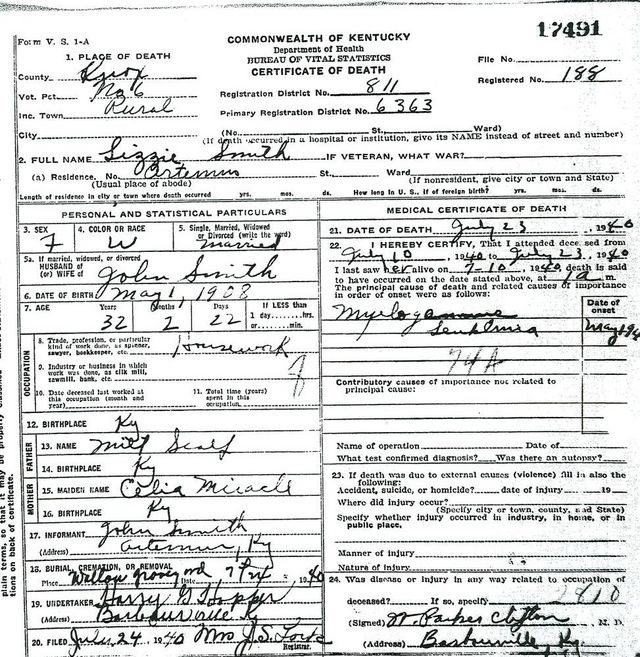 17491
Form V. S. 1-A
COMMONWEALTH OF KENTUCKY
Department of Health
BUREAU OF VITAL STATISTICS
CERTIFICATE OF DEATH
File No.
Registered No. 188
1. PLACE OF DEATH
County Knox
Vot. Pct. No 6
Inc. Town Rural
City
Registration District No. 811
Primary Registration District No. 6363
(No. St., Ward)
(If death occurred in a hospital or institution, give its NAME instead of street and number)
2. FULL NAME Lizzie Smith IF VETERAN, WHAT WAR?
(a) Residence. No. Artemus St. Ward
(Usual place of abode) (If nonresident, give city or town and State)
Length of residence in city or town where death occurred yrs. mos. ds. How long in U. S., if of foreign birth? yrs. mos. ds.
PERSONAL AND STATISTICAL PARTICULARS
3. SEX 4. COLOR OR RACE 5. Single, Married, Widowed
or Divorced (write the word)
F W married
5a. If married, widowed, or divorced
HUSBAND of
(or) WIFE of John Smith
6. DATE OF BIRTH May 1, 1908
7. AGE Years Months Days If LESS than
1 day hrs.
or min.
32 2 22
OCCUPATION
8. Trade, profession, or particular
kind of work done, as spinner,
sawyer, bookkeeper, etc. Housework
9. Industry or business in which
work was done, as silk mill,
sawmill, bank, etc.
10. Date deceased last worked at
this occupation (month and
year)
11. Total time (years)
spent in this
occupation
12. BIRTHPLACE Ky
FATHER
13. NAME Milf Scalf
14. BIRTHPLACE Ky
MOTHER
15. MAIDEN NAME Celia Miracle
16. BIRTHPLACE Ky
17. INFORMANT John Smith
(Address) Artemus, Ky
18. BURIAL, CREMATION, OR REMOVAL
Place Date 1940
19. UNDERTAKER Harry G Hopper
(Address) Barbourville Ky
20. FILED July 24, 1940 Mrs J.S.
Registrar.
MEDICAL CERTIFICATE OF DEATH
21. DATE OF DEATH July 23, 1940
22. I HEREBY CERTIFY, That I attended deceased from
July 10, 1940 to July 23, 1940
I last saw her alive on 7-10, 1940, death is said
to have occurred on the date stated above, at 1 a m.
The principal cause of death and related causes of importance
in order of onset were as follows:
Date of
onset
Leukemia
74A
Contributory causes of importance not related to
principal cause:
Name of operation Date of
What test confirmed diagnosis? Was there an autopsy?
23. If death was due to external causes (violence) fill in also the
following:
Accident, suicide, or homicide? date of injury 19
Where did injury occur?
(Specify city or town, county, and State)
Specify whether injury occurred in industry, in home, or in
public place.
Manner of injury
Nature of injury
24. Was disease or injury in any way related to occupation of
deceased? If so, specify
(Signed) W. Parker Clifton M. D.
(Address) Barbourville, Ky
plain terms, so that it may be properly classified.
tions on back of certificate.